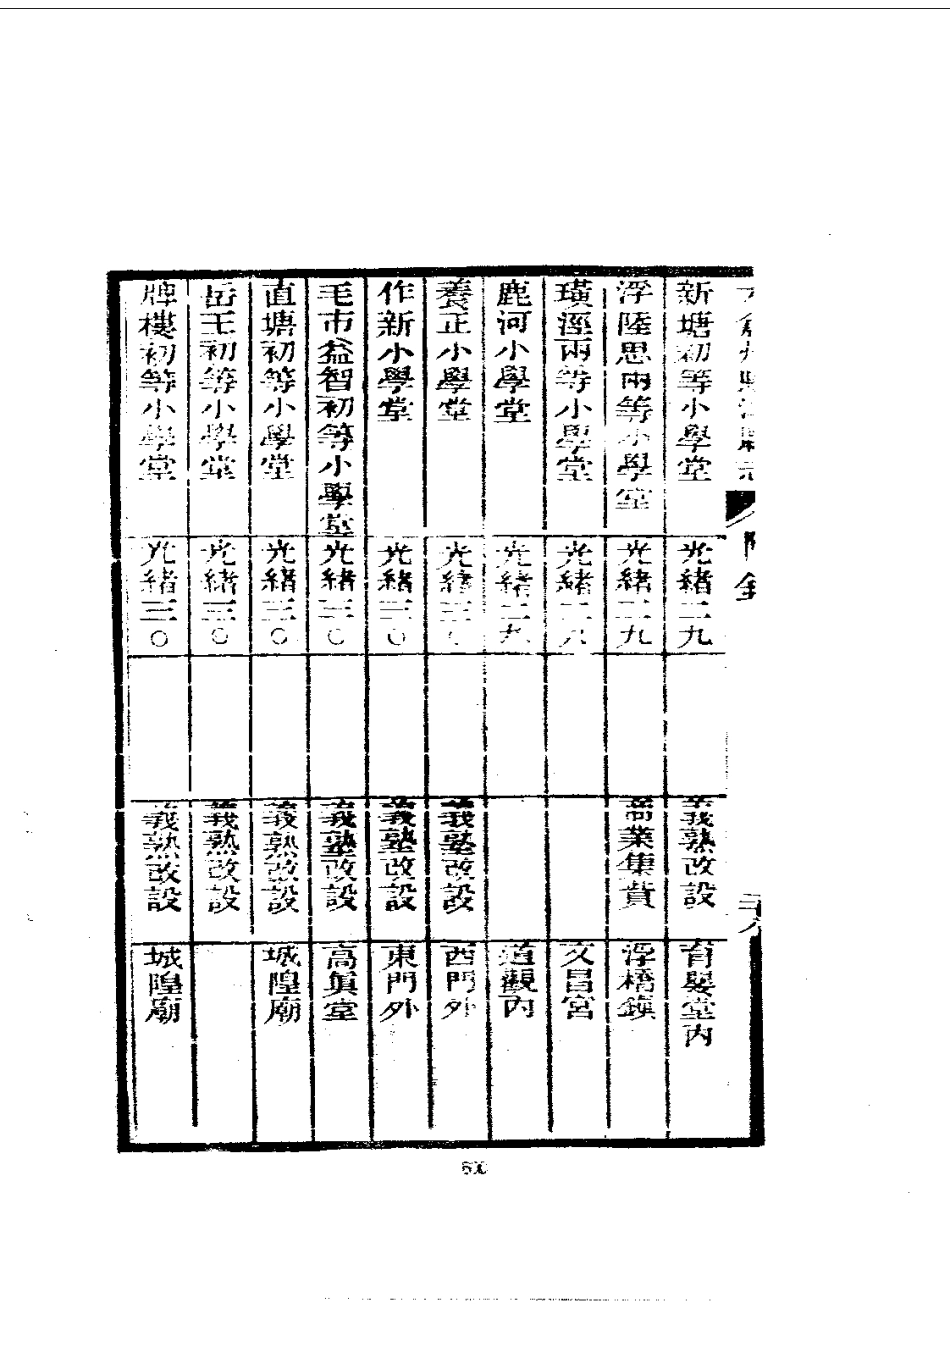 新塘初等小學堂 光緒二九 義塾改設 育嬰堂內
浮陸思兩等小學堂 光緒二九 商業集貲 浮橋鎮
璜涇兩等小學堂 光緒二八 文昌宮
鹿河小學堂 光緒二九 道觀內
養正小學堂 光緒三 義塾改設 西門外
作新小學堂 光緒三〇 義塾改設 東門外
毛市益智初等小學堂 光緒三〇 義塾改設 高真堂
直塘初等小學堂 光緒三〇 義塾改設 城隍廟
岳王初等小學堂 光緒三〇 義塾改設
牌樓初等小學堂 光緒三〇 義塾改設 城隍廟